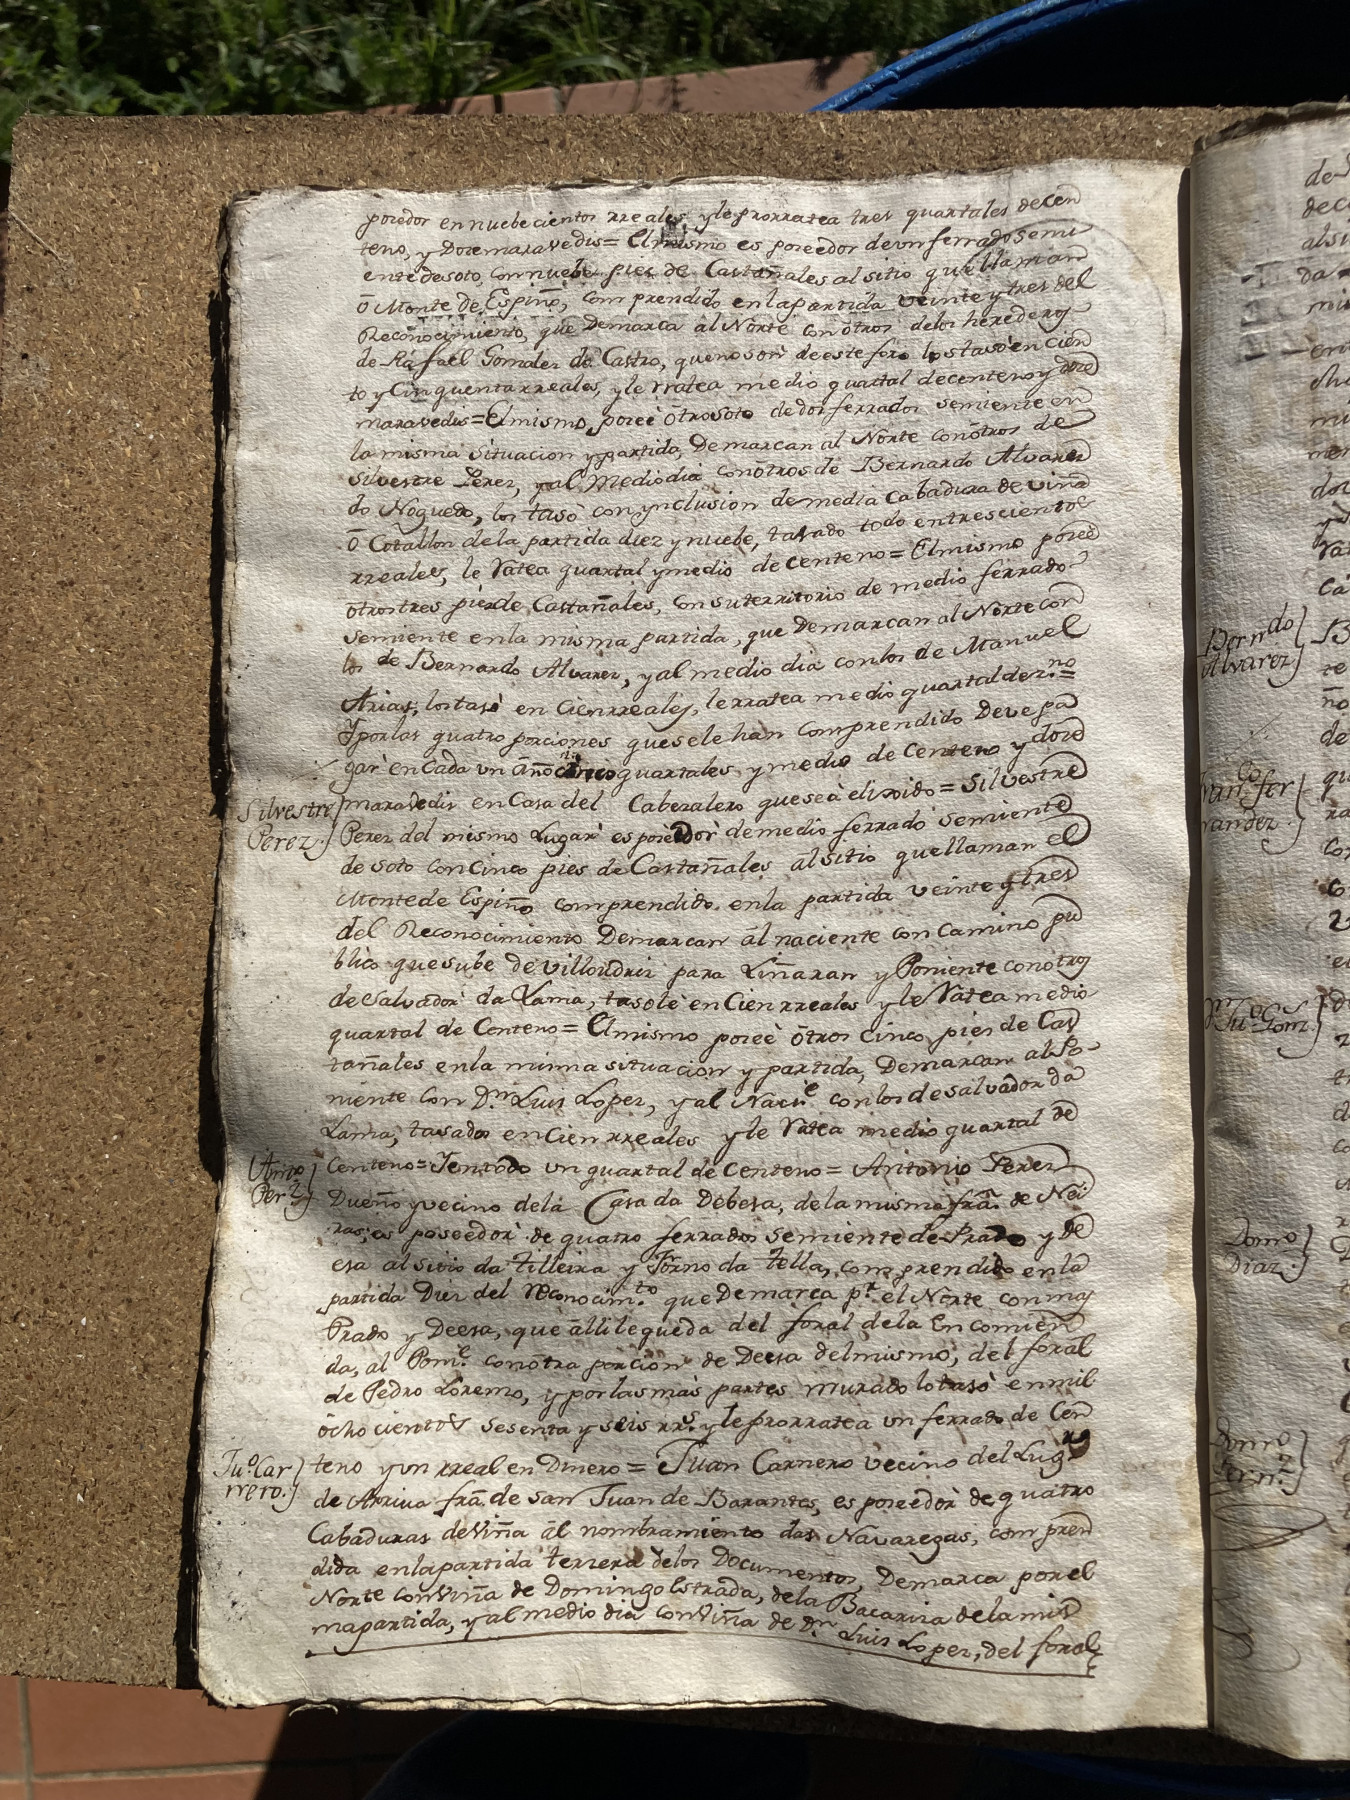 poseedor en nuebecientos rreales y le prorratea tres quartales de cen
teno, y Doze maravedis = El mismo es poseedor de vn ferrado semi
ente de soto, con nuebe pies de Castañales al sitio que llaman
ō Monte de Espiño, comprendido en la partida veinte y tres del
Reconocimiento, que Demarca al Norte con ōtros delos herederos
de Rafael Gonzalez de Castro, que no son de este foro los tasó en cien
to y Cinquenta rreales, y le rratea medio quartal de centeno y doze
maravedis = El mismo, poseè ōtro soto de dos ferrados semiente en
la misma Situacion y partida, Demarcan al Norte con ōtros de
Silvestre Perez, y al Mediodia con otros de Bernardo Alvarez
do Noguedo, los tasó con ynclusion de media Cabadura de viña
ō Cotallon de la partida diez y nuebe, tasado todo en trescientos
rreales, le Ratea quartal y medio de centeno = El mismo poseè
otros tres pies de Castañales, con su territorio de medio ferrado
semiente en la misma partida, que Demarcan al Norte con
los de Bernardo Alvarez, y al medio dia con los de Manuel
Arias, los tasó en Cien rreales, le rratea medio quartal de z.no =
Y por las quatro porciones que se le han Comprendido Deve pa
gar en Cada un āño cinco quartales, y medio de Centeno y doze
Silvestre
Perez.
maravedis en Casa del Cabezalero que seà elixido = Silvestre
Perez del mismo Lugar es poseedor de medio ferrado semiente
de soto con Cinco pies de Castañales al sitio que llaman el
Monte de Espiño comprendido en la partida veinte y tres
del Reconocimiento Demarcan āl naciente con Camino pu
blico que sube de Villoudriz para Liñaran y Poniente con otros
de Salvador da Lama, tasole en Cien rreales y le Ratea medio
quartal de Centeno = El mismo poseè ōtros Cinco pies de Cas
tañales en la misma situacion y partida, Demarcan al Po-
niente con D.n Luis Lopez, y al Naci.e con los de Salvador da
Lama, tasados en Cien rreales y le Ratea medio quartal de
Anto.
Perz.
Centeno = Y en todo un quartal de Centeno = Antonio Perez
Dueño y vecino de la Casa da Debesa, de la misma fra. de Nei
ras, es poseedor de quatro ferrados semiente de Prado y de
esa al sitio da Tilleira y Forno da tella, comprendido en la
partida Diez del rreconocim.to que Demarca p.r el Norte con mas
Prado y Deesa, que ālli le queda del foral de la Encomien
da, al Pon.e con ōtra porcion de Deesa del mismo, del foral
de Pedro Lorenzo, y por las mas partes murado lo tasó en mil
ōchocientos sesenta y seis rrs. y le prorratea un ferrado de Cen
Ju.o Car
rrero.
teno y un rreal en Dinero = Juan Carnero vecino del Lug.r
de Arriva fra. de San Juan de Barantes, es poseedor de quatro
Cabaduras de Viña āl nombramiento das Navaregas, compren
dida en la partida terzera de los Documentos, Demarca por el
Norte con Viña de Domingo Estrada, de la Bacariza de la mis
ma partida, y al medio dia con Viña de D.n Luis Lopez, del foral
Bern.do
Alvarez
Domo
Diaz.